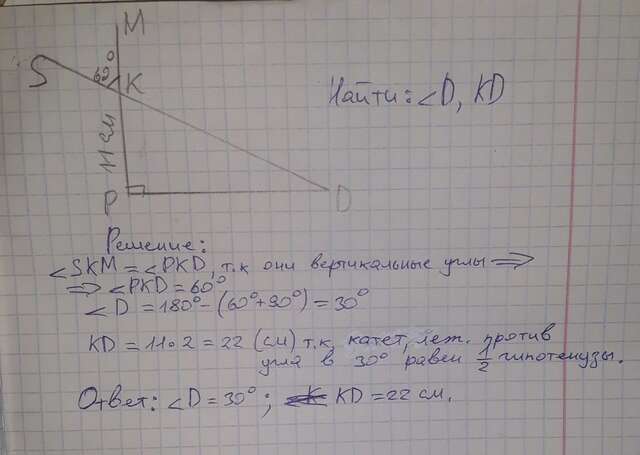 M
S
60°
K
Найти: ∠D, KD
11 см
P
D
Решение:
∠SKM = ∠PKD, т.к они вертикальные углы ⇒
⇒ ∠PKD = 60°
∠D = 180° - (60° + 90°) = 30°
KD = 11 · 2 = 22 (см) т.к. катет, леж. против
угла в 30° равен 1/2 гипотенузы.
Ответ: ∠D = 30°; KD = 22 см.